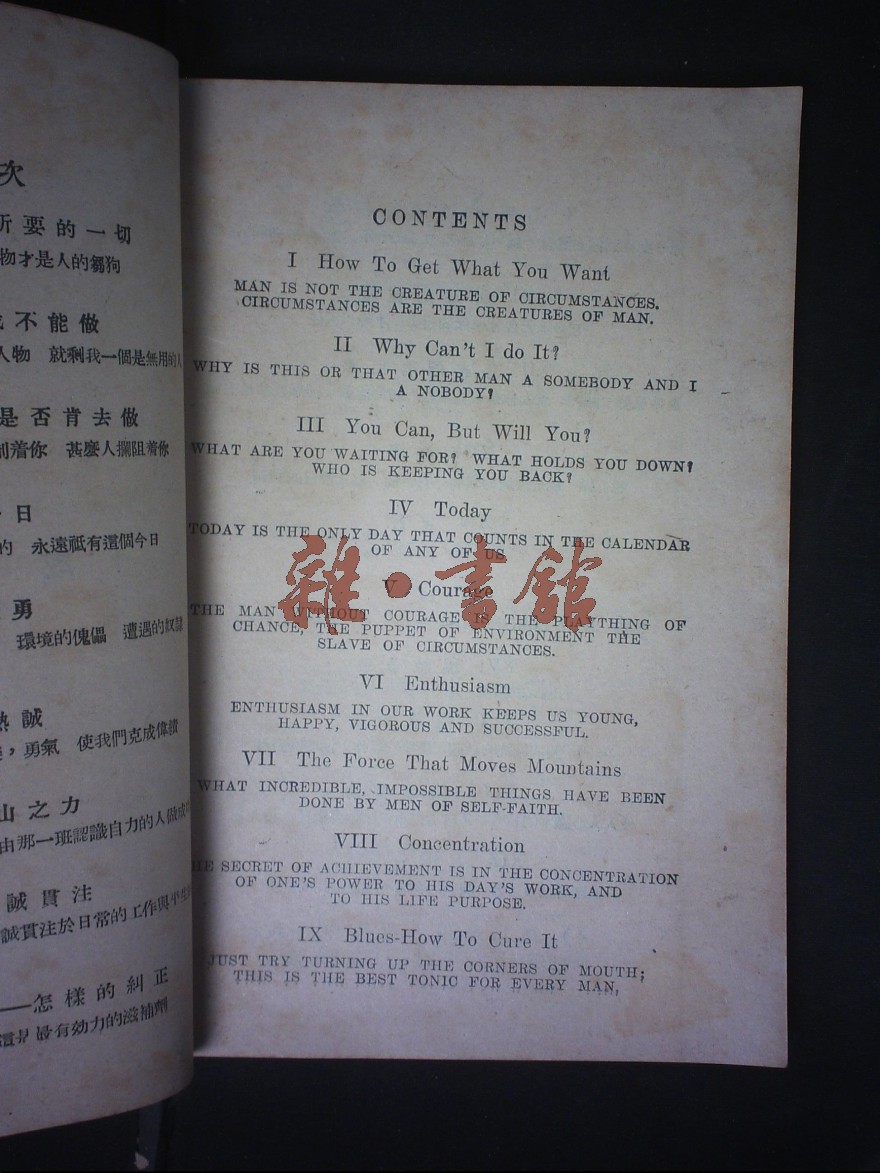 次
所要的一切
物才是人的芻狗
不能做
人物 就剩我一個是無用的人
是否肯去做
制着你 甚麼人攔阻着你
日
的 永遠祇有這個今日
勇
環境的傀儡 遭遇的奴隸
熱誠
，勇氣 使我們克成偉績
山之力
由那一班認識自力的人做成
誠貫注
誠貫注於日常的工作與平生
——怎樣的糾正
還是最有効力的滋補劑
CONTENTS
I How To Get What You Want
MAN IS NOT THE CREATURE OF CIRCUMSTANCES.
CIRCUMSTANCES ARE THE CREATURES OF MAN.
II Why Can't I do It?
WHY IS THIS OR THAT OTHER MAN A SOMEBODY AND I
A NOBODY?
III You Can, But Will You?
WHAT ARE YOU WAITING FOR? WHAT HOLDS YOU DOWN?
WHO IS KEEPING YOU BACK?
IV Today
TODAY IS THE ONLY DAY THAT COUNTS IN THE CALENDAR
OF ANY OF US
V Courage
THE MAN WITHOUT COURAGE IS THE PLAYTHING OF
CHANCE, THE PUPPET OF ENVIRONMENT THE
SLAVE OF CIRCUMSTANCES.
VI Enthusiasm
ENTHUSIASM IN OUR WORK KEEPS US YOUNG,
HAPPY, VIGOROUS AND SUCCESSFUL.
VII The Force That Moves Mountains
WHAT INCREDIBLE, IMPOSSIBLE THINGS HAVE BEEN
DONE BY MEN OF SELF-FAITH.
VIII Concentration
THE SECRET OF ACHIEVEMENT IS IN THE CONCENTRATION
OF ONE'S POWER TO HIS DAY'S WORK, AND
TO HIS LIFE PURPOSE.
IX Blues-How To Cure It
JUST TRY TURNING UP THE CORNERS OF MOUTH;
THIS IS THE BEST TONIC FOR EVERY MAN,
雜·書館